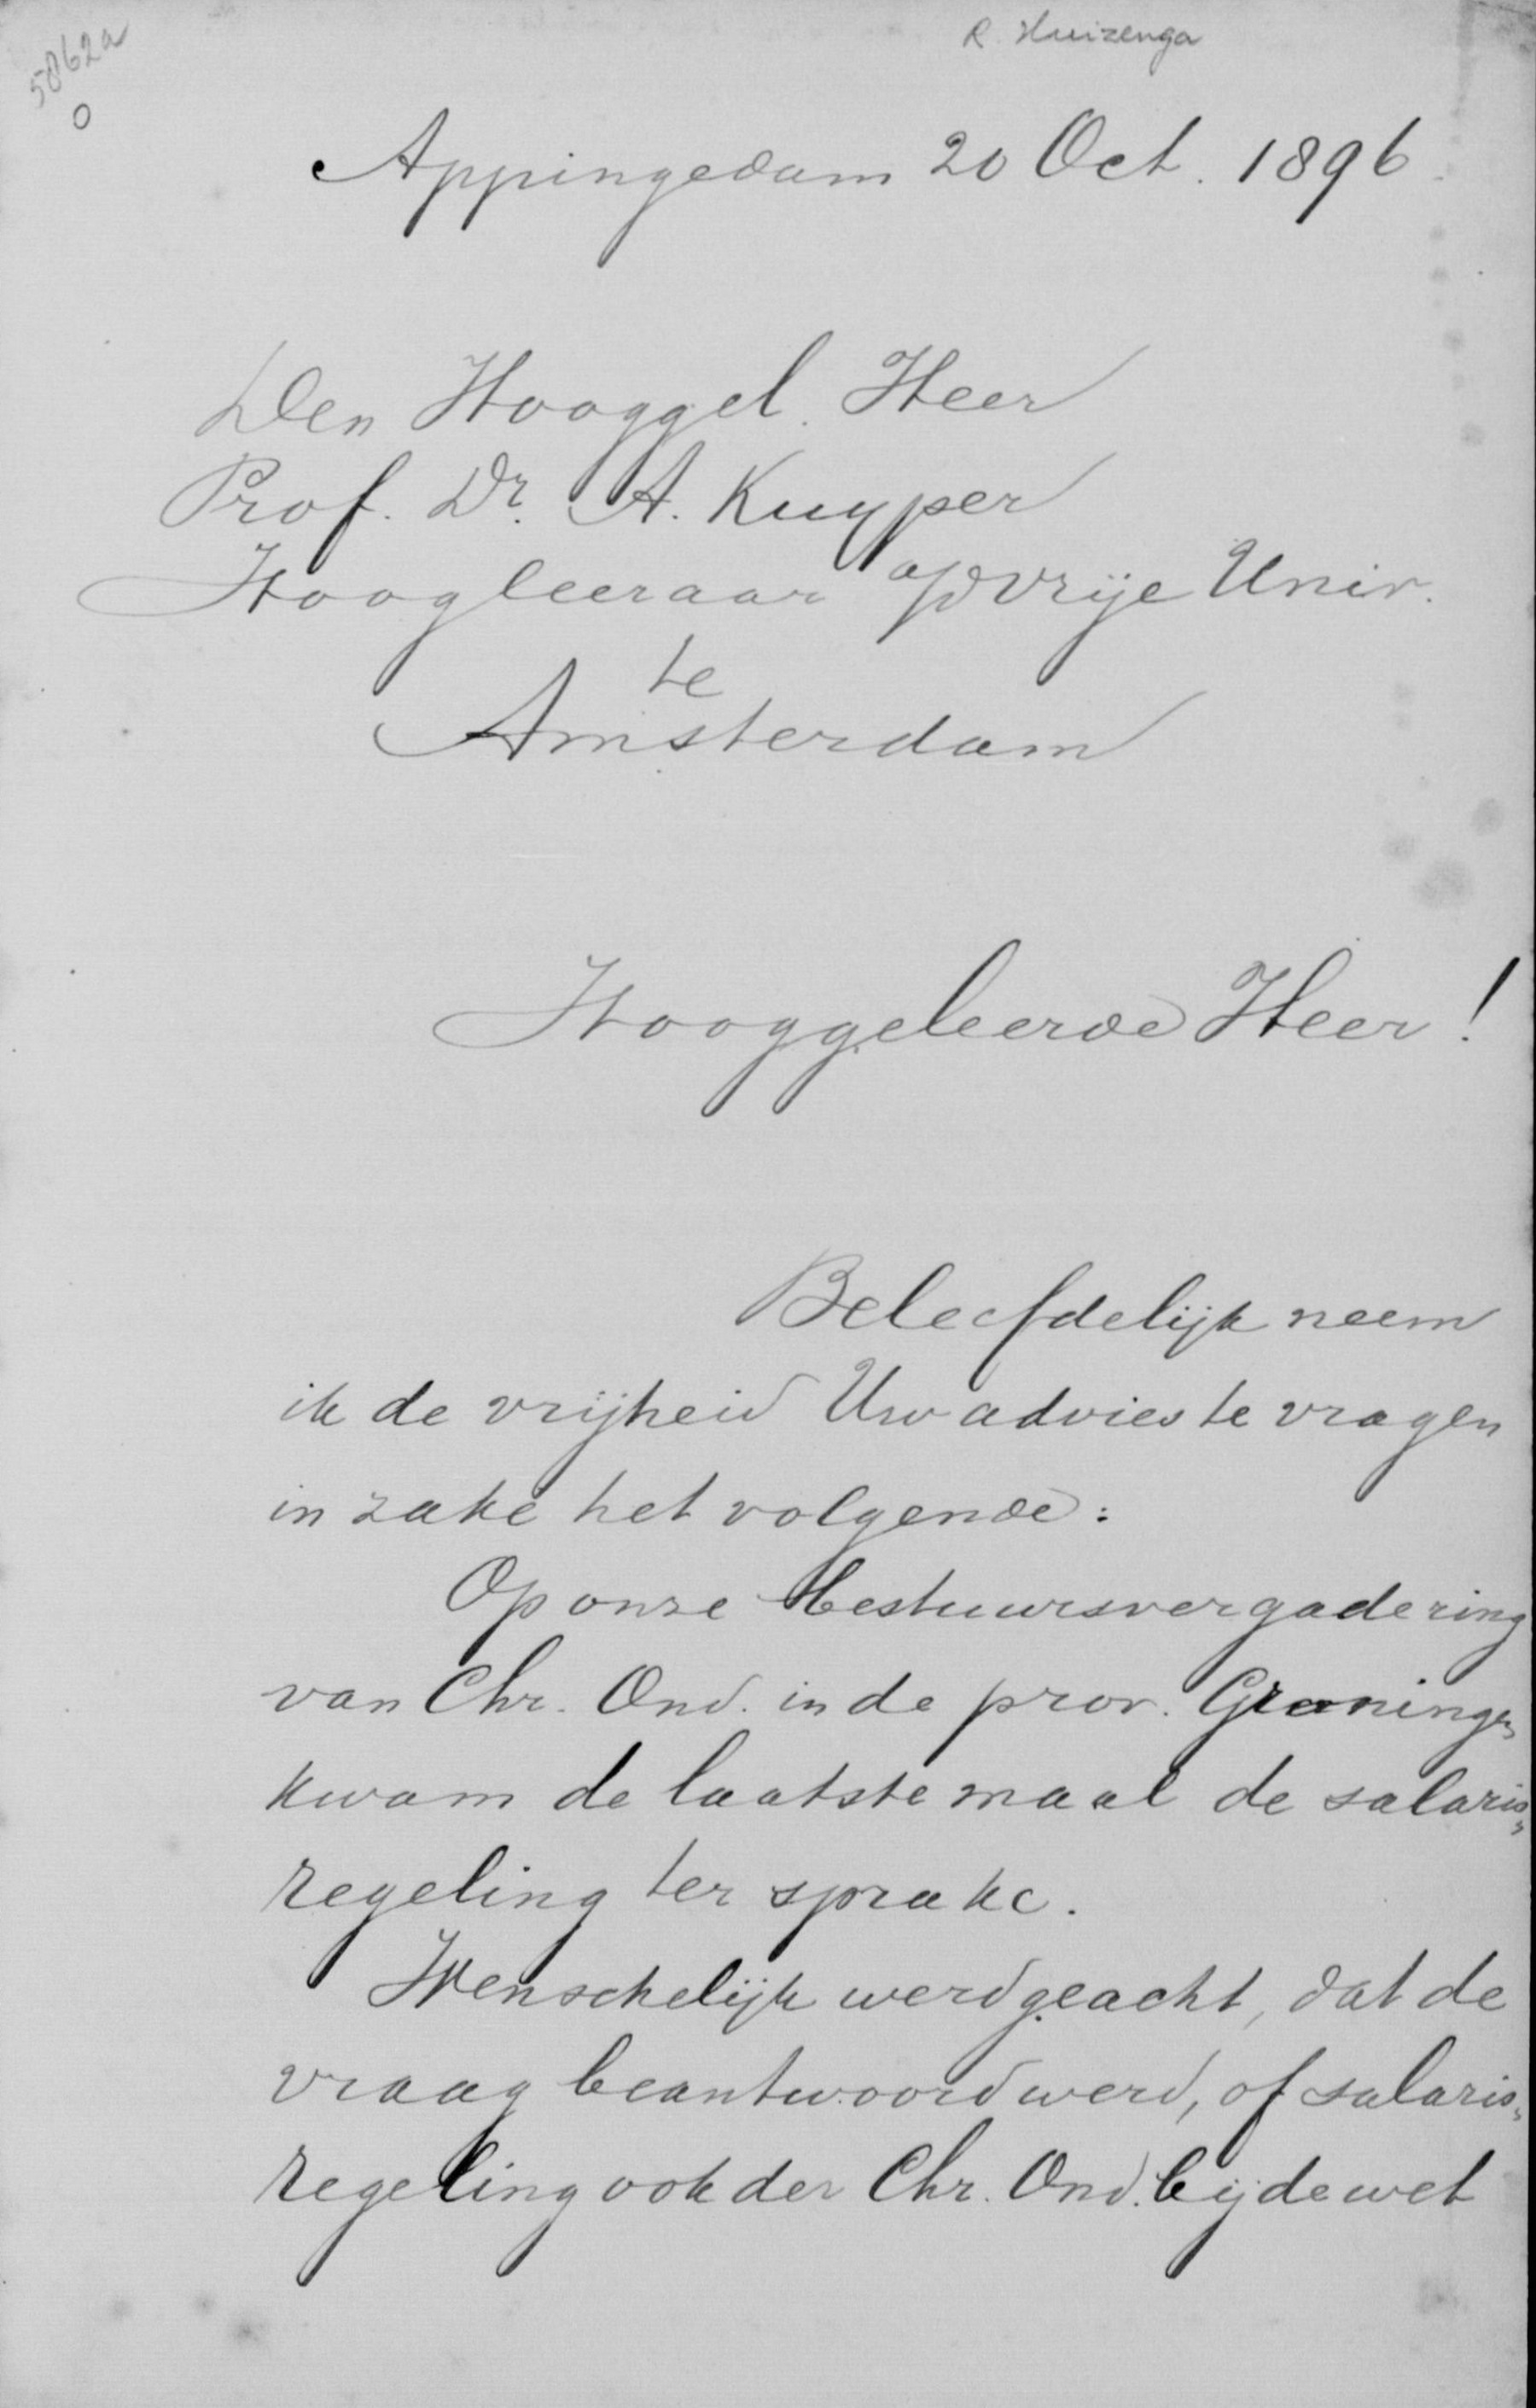 5862a
O
R. Huizenga
Appingedam 20 Oct. 1896.
Den Hooggel. Heer
Prof. Dr. A. Kuyper
Hoogleeraar a/d vrije Univ.
te
Amsterdam
Hooggeleerde Heer!
Beleefdelijk neem
ik de vrijheid Uw advies te vragen
in zake het volgende:
Op onze Bestuursvergadering
van Chr. Ond. in de prov. Groningen
kwam de laatste maal de salaris„
regeling ter sprake.
Wenschelijk werd geacht, dat de
vraag beantwoord werd, of salaris„
regeling ook der Chr. Ond. bij de wet